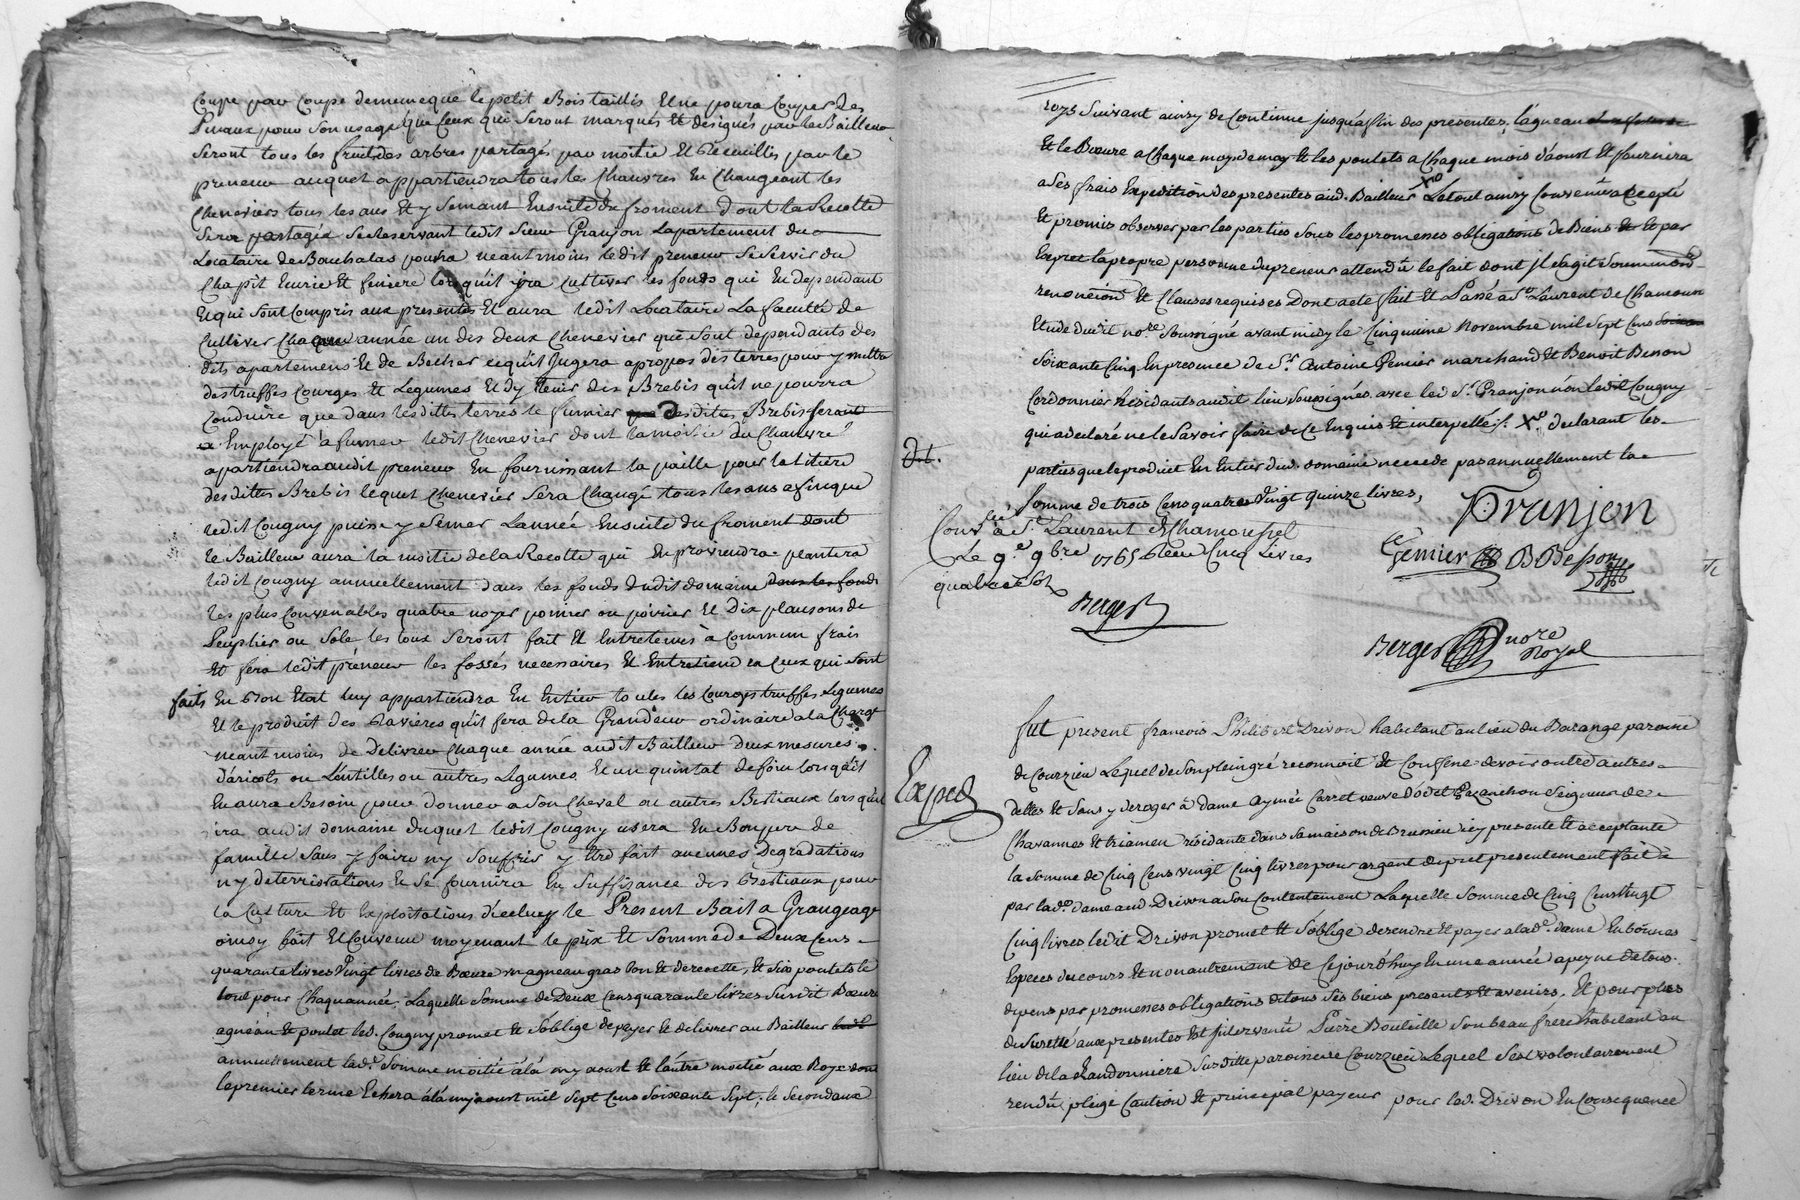 Coupe par Coupe de meme que le petit Bois taillis Et ne poura Couper Les
Puraux pour Son usage que Ceux qui Seront marqués Et designés par le Bailleur
Seront tous les fruits des arbres partagés par moitié Et Recueillis par le
preneur auquel appartiendra tous les Chanvres En Changeant les
Cheneviers tous les ans Et y Semant Ensuite du froment dont la Recolte
Sera partagée Se Reservant ledit Sieur Granjon Lapartement du
Locataire de Bouchalas pourra neantmoins ledit preneur Se Servir du
Chapit Eurie Et feniere lorsqu'il ira Cultiver les fonds qui En dependant
Et qui Sont Compris aux presentes Et aura ledit Locataire La faculté de
Cultiver Chaque année un des deux Chenevier que Sont dependants des
dits apartemens Et de Becher ce qu'il Jugera apropos des terres pour y mettre
des truffes Courges Et Legumes Et d'y tenir dix Brebis qu'il ne pourra
Conduire que dans lesdittes terres le fumier desdittes Brebis Seront
Employé a fumer ledit Chenevier dont la moitié du Chanvre
apartiendra audit preneur En fournissant la paille pour la litiere
desdittes Brebis lequel Chenevier Sera Changé tous les ans afin que
ledit Cougny puisse y Semer Lannée Ensuite du froment dont
le Bailleur aura la moitié de la Recolte qui En proviendra plantera
ledit Cougny annuellement dans les fonds dudit domaine dans les fonds
les plus Convenables quatre noyer pomier ou poirier Et Dix plansons de
Peuplier ou Sole les toux Seront fait Et Entretenus à Commun frais
Et fera ledit preneur les fossés necessaires Et Entretiendra Ceux qui Sont
faits En Bon Etat luy appartiendra En Entier toutes les Courges truffes Legumes
Et le produit des Ravieres qu'il fera de la Grandeur ordinaire a la Charge
neantmoins de Delivrer Chaque année audit Bailleur deux mesures
d'aricots ou Lentilles ou autres Legumes Et un quintal de foin lorsqu'il
En aura Besoin pour donner a Son Cheval ou autres Bestiaux lorsqu'il
ira audit domaine duquel ledit Cougny usera En Bon pere de
famille Sans y faire ny Souffrir y Etre fait aucunes degradations
ny deterriorations Et Se fournira En Suffisance des Bestiaux pour
la Culture Et Exploitations d'iceluy le Present Bail a Grangeage
ainsy fait Et Convenu moyenant le prix Et Somme de Deux Cens
quarante livres Vingt livres de Bœure un agneau gras bon Et de recette, Et Six poulets le
tout pour Chaquannée. Laquelle Somme de Deux Cens quarante livres Susdit Bœure
agneau Et poulet led. Cougny promet Et S'oblige de payer Et delivrer au Bailleur
annuellement lad.e Somme moitié à la my aoust Et l'autre moitié aux Roys dont
le premier terme Echera à la my aoust mil Sept Cens Soixante Sept, le Second aux
roys Suivant ainsy de Continue jusqu'a fin des presentes, l'agneau
Et le Bœure a Chaque moys de may Et les poulets a Chaque mois d'aoust Et fournira
a Ses frais Expedition des presentes aud. Bailleur Xo Le tout ainsy Convenu accepté
Et promis observer par les parties Sous les promesses obligations de Biens Et par
Expret la propre personne du preneur attendû le fait dont Il S'agit Soumissions
renonciôns Et Clauses requises Dont acte fait Et Passé a St Laurent de Chamousset
Etude dudit nore. Soussigné avant midy le Cinquieme Novembre mil Sept Cens
Soixante Cinq En presence de Sr. Antoine Gemier marchand Et Benoit Besson
Cordonnier Residants audit lieu Soussignés avec led Sr. Granjon non ledit Cougny
qui a declaré ne le Savoir faire de Ce Enquis Et interpellé ./. Xo. declarant les
parties que le produit En Entier dud. domaine n'excede pas annuellement la
d.t.
Somme de trois Cens quatre Vingt quinze livres,
Conlé a St. Laurent de Chamousset
Le 9e 9bre 1765 Reçu Cinq Livres
quatre Sol
Granjon
Gemier B Besson
Berger
Berger nore
Royal
fut present francois Philibert Drivon habitant au lieu du Barange paroisse
de Courzieu Lequel de Son plein gré reconnoit Et Confesse devoir outre autres
Exped
dettes Et Sans y deroger à dame aymée Carret veuve d'odet Pazanchon Seigneur de
Chavannes Et triamen résidante dans Sa maison de Brussieu icy presente Et acceptante
la Somme de Cinq Cens vingt Cinq livres pour argent de pret presentement fait
par lad.e dame aud. Drivon a Son Contentement Laquelle Somme de Cinq Cens Vingt
Cinq livres ledit Drivon promet Et S'oblige de rendre Et payer a lad.e dame En bonnes
Especes du cours Et non autrement de Cejourd'huy En une année a peyne de tous
depens par promesses obligations de tous Ses biens presents Et avenirs. Et pour plus
de Sureté aux presentes Est Intervenû Pierre Bouteille Son beau frere habitant au
lieu de la Randonniere Susditte paroisse de Courzieu Lequel S'est volontairement
rendû, pleige Caution Et principal payeur pour led. Drivon En Consequence